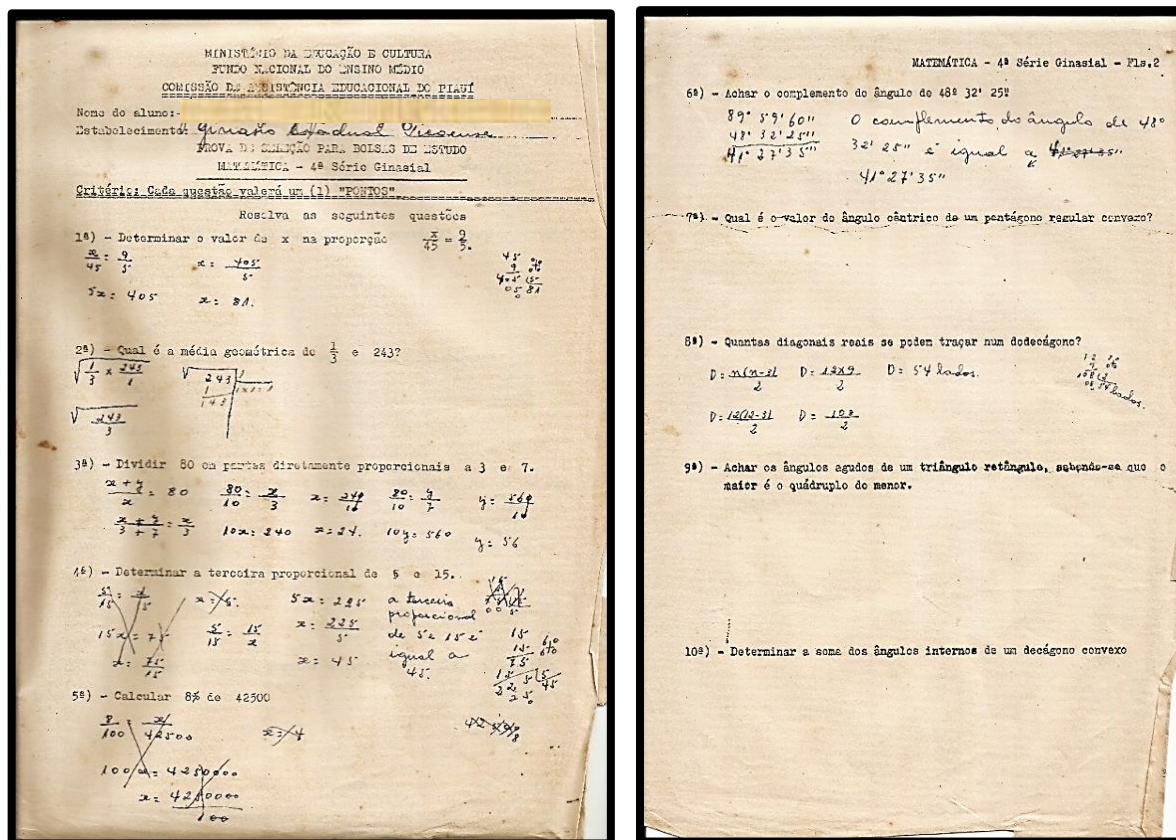 MINISTÉRIO DA EDUCAÇÃO E CULTURA
FUNDO NACIONAL DO ENSINO MÉDIO
COMISSÃO DE ASSISTÊNCIA EDUCACIONAL DO PIAUÍ
Nome do aluno:-
Estabelecimento: Ginásio Estadual Picoense
PROVA DE SELEÇÃO PARA BOLSAS DE ESTUDO
MATEMÁTICA - 4ª Série Ginasial
Critério: Cada questão valerá um (1) "PONTOS"
Resolva as seguintes questões
1ª) - Determinar o valor de x na proporção x/45 = 9/5.
x/45 = 9/5 x = 405/5
5x = 405 x = 81.
2ª) - Qual é a média geométrica de 1/3 e 243?
√1/3 x 243/1
√243/3
3ª) - Dividir 80 em partes diretamente proporcionais a 3 e 7.
x + y/x = 80 80/10 = x/3 x = 240/10 80/10 = y/7 y = 560/10
x + y/3 + 7 = x/3 10x = 240 x = 24. 10y = 560 y = 56
4ª) - Determinar a terceira proporcional de 5 e 15.
5x = 225 a terceira
15x = 75 5/15 = 15/x x = 225/5 proporcional
de 5 e 15 é
x = 75/15 x = 45 igual a
45.
5ª) - Calcular 8% de 42500
8/100 = x/42500
100x = 4250000
x = 4250000/100
MATEMÁTICA - 4ª Série Ginasial - Fls.2
6ª) - Achar o complemento do ângulo de 48º 32' 25"
89° 59' 60" O complemento do ângulo de 48º
48° 32' 25" 32' 25" é igual a 41° 27' 35"
41° 27' 35" 41° 27' 35"
7ª) - Qual é o valor do ângulo cêntrico de um pentágono regular convexo?
8ª) - Quantas diagonais reais se podem traçar num dodecágono?
D = n(n-3)/2 D = 12x9/2 D = 54 lados.
D = 12(12-3)/2 D = 108/2
9ª) - Achar os ângulos agudos de um triângulo retângulo, sabendo-se que o
maior é o quádruplo do menor.
10ª) - Determinar a soma dos ângulos internos de um decágono convexo